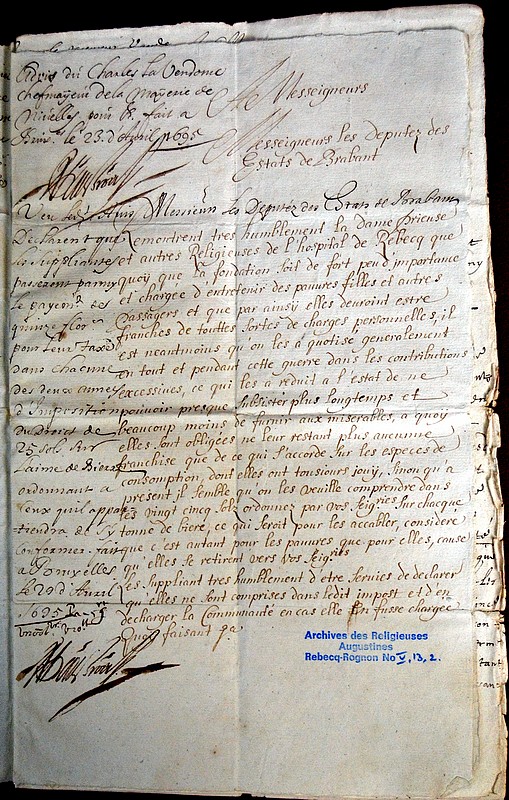 du Charles La Vendome
chefmayeur de la Mayerie de
Nivelles pour fait a
le 23. d'Avril 1695
Messeigneurs
Messeigneurs les Deputez des
Estats de Brabant
Veu Messieurs les Deputez des Estats de Brabant
Declarent que
les suppliantes
passeront parmy
le payem.t des
quinze flor.s
pour leur taxe
dans chacune
des deux années
d'Imposition
du droict de
25 sols sur
l'aime de biere
ordonnant a
ceux qu'il appar
tiendra de s'y
conformer. fait
a Bruxelles
le 29 d'Avril
1695
Remontrent tres humblement la dame Prieuse
et autres Religieuses de l'hospital de Rebecq que
quoy que la fondation soit de fort peu d'importance
et chargée d'entretenir des pauures filles et autres
passagers et que par ainsÿ elles deuroint estre
franches de touttes sortes de charges personnelles, il
est neantmoins qu'on les à quotisé generalement
en tout et pendant cette guerre dans les contributions
excessiues, ce qui les à réduit a l'estat de ne
pouvoir presque subsister plus longtemps et
beaucoup moins de furnir aux miserables, a quoÿ
elles sont obligées ne leur restant plus aucune
franchise que de ce qui s'accorde sur les especes de
consomption, dont elles ont tousiours jouÿ, sinon qu'a
present il semble qu'on les veuille comprendre dans
les vingt cincq solz ordonnez par vos Seig.ries sur chacque
tonne de biere, ce qui seroit pour les accabler, consideré
que c'est autant pour les pauures que pour elles, cause
qu'elles se retirent vers vos Seig.ries
les suppliant tres humblement d'etre seruies de declarer
qu'elles ne sont comprises dans ledit impost et d'en
decharger la Communauté en cas elle en fusse chargée
Quoy faisant &a
Archives des Religieuses
Augustines
Rebecq-Rognon No V, 13, 2.